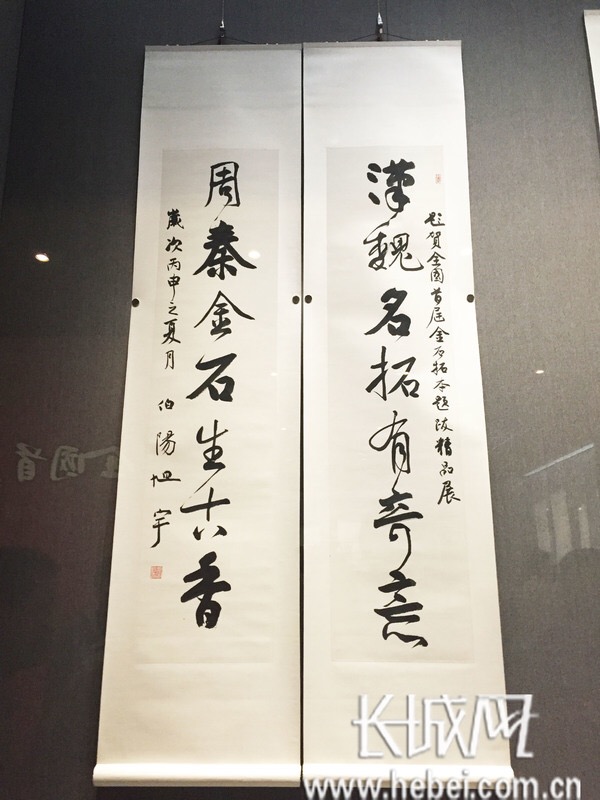 题賀全國首届金石拓本题跋精品展
漢魏名拓有奇意
周秦金石生古香
歲次丙申之夏月 伯陽旭宇
长城网
www.hebei.com.cn